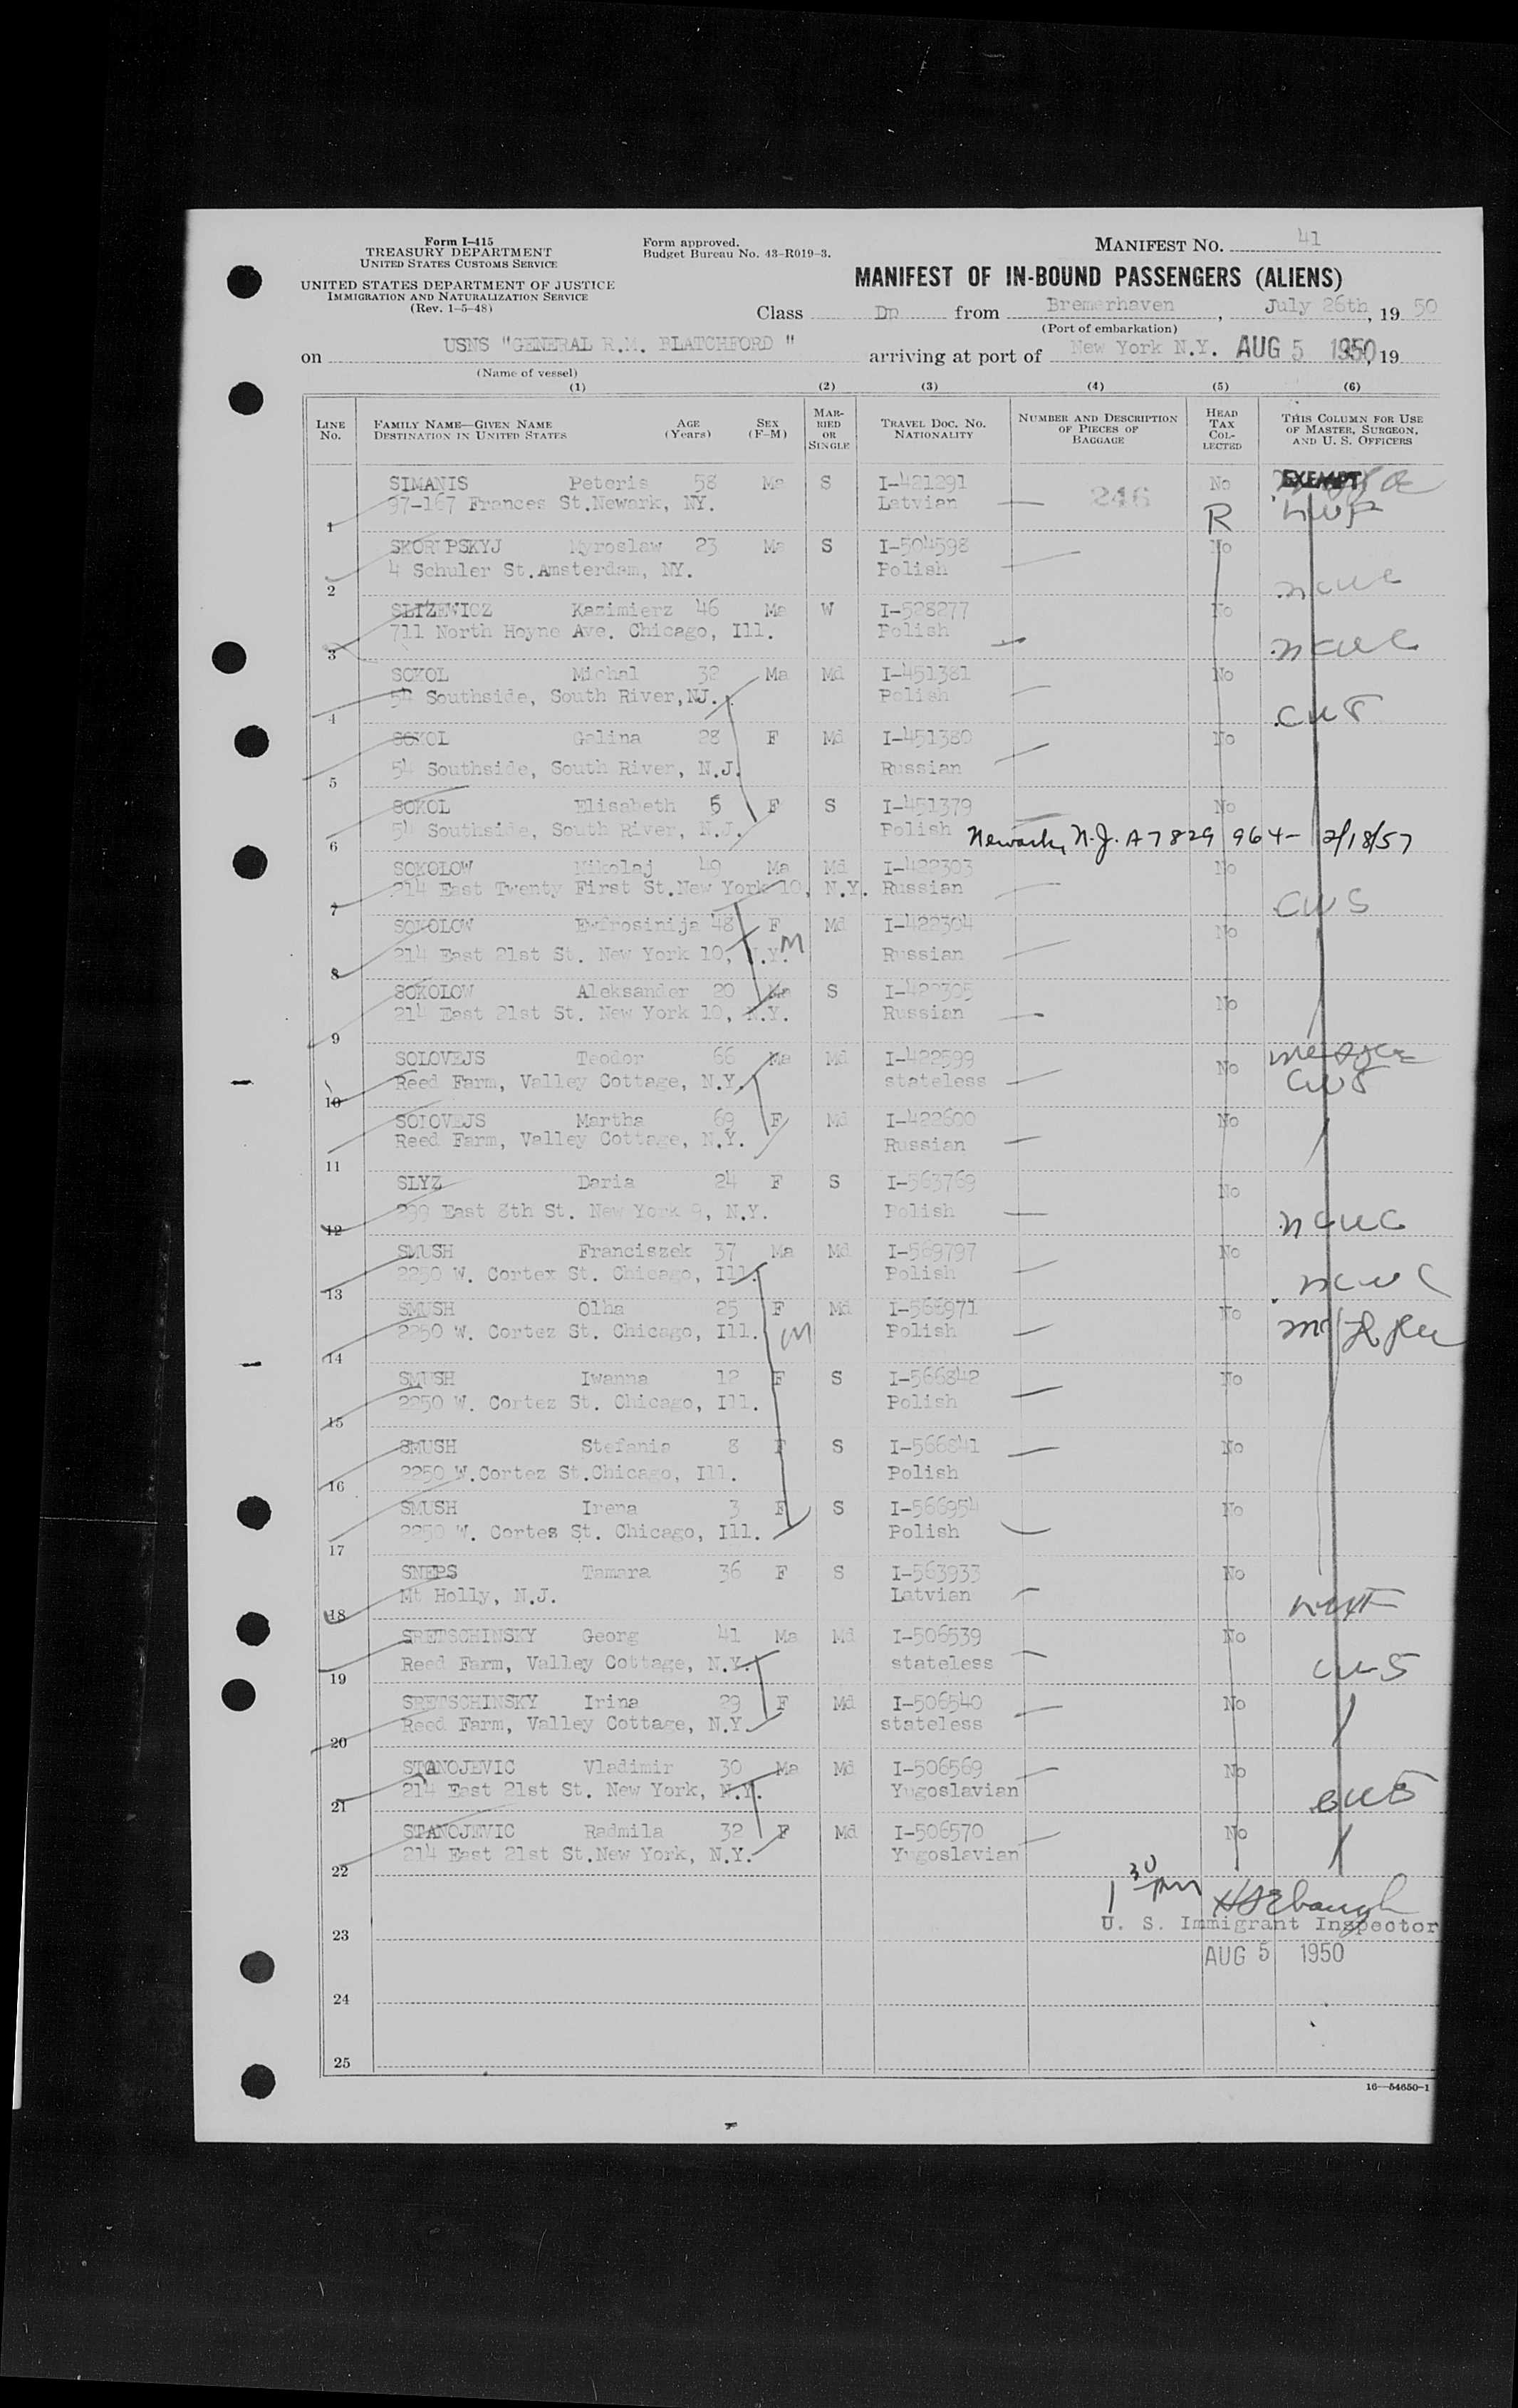 Form I-415
TREASURY DEPARTMENT
UNITED STATES CUSTOMS SERVICE
UNITED STATES DEPARTMENT OF JUSTICE
IMMIGRATION AND NATURALIZATION SERVICE
(Rev. 1-5-48)
Form approved.
Budget Bureau No. 43-R019-3.
MANIFEST NO. 41
MANIFEST OF IN-BOUND PASSENGERS (ALIENS)
Class Dp from Bremerhaven, July 26th, 19 50
(Port of embarkation)
on USNS "GENERAL R.M. BLATCHFORD " arriving at port of New York N.Y. AUG 5 1950, 19
(Name of vessel)
(1) (2) (3) (4) (5) (6)
LINE NO. FAMILY NAME—GIVEN NAME DESTINATION IN UNITED STATES AGE (Years) SEX (F-M) MARRIED OR SINGLE TRAVEL DOC. NO. NATIONALITY NUMBER AND DESCRIPTION OF PIECES OF BAGGAGE HEAD TAX COLLECTED THIS COLUMN FOR USE OF MASTER, SURGEON, AND U. S. OFFICERS
SIMANIS Peteris 58 Ma S I-421291 246 No EXEMPT
1 97-167 Frances St.Newark, NY. Latvian R
SKORUPSKYJ Myroslaw 23 Ma S I-504598 No
2 4 Schuler St.Amsterdam, NY. Polish
SLIZEWICZ Kazimierz 46 Ma W I-528277 No
3 711 North Hoyne Ave. Chicago, Ill. Polish
SOKOL Michal 32 Ma Md I-451381 No
4 54 Southside, South River,NJ. Polish
SOKOL Galina 28 F Md I-451380 No
5 54 Southside, South River, N.J. Russian
SOKOL Elisabeth 5 F S I-451379 No
6 54 Southside, South River, N.J. Polish Newark, N.J. A7829 964- 2/18/57
SOKOLOW Nikolaj 49 Ma Md I-422303 No
7 214 East Twenty First St.New York 10, N.Y. Russian CWS
SOKOLOW Ewfrosinija 48 F Md I-422304 No
8 214 East 21st St. New York 10, N.Y. M Russian
SOKOLOW Aleksander 20 Ma S I-422305 No
9 214 East 21st St. New York 10, N.Y. Russian
SOLOVEJS Teodor 66 Ma Md I-422599 No
10 Reed Farm, Valley Cottage, N.Y. stateless
SOLOVEJS Martha 69 F Md I-422600 No
11 Reed Farm, Valley Cottage, N.Y. Russian
SLYZ Daria 24 F S I-563769 No
12 299 East 8th St. New York 9, N.Y. Polish
SMUSH Franciszek 37 Ma Md I-569797 No
13 2250 W. Cortex St. Chicago, Ill. Polish
SMUSH Olha 25 F Md I-566971 No
14 2250 W. Cortez St. Chicago, Ill. M Polish
SMUSH Iwanna 12 F S I-566842 No
15 2250 W. Cortez St. Chicago, Ill. Polish
SMUSH Stefania 8 F S I-566841 No
16 2250 W.Cortez St.Chicago, Ill. Polish
SMUSH Irena 3 F S I-566954 No
17 2250 W. Cortes St. Chicago, Ill. Polish
SNEPS Tamara 36 F S I-563933 No
18 Mt Holly, N.J. Latvian
SRETSCHINSKY Georg 41 Ma Md I-506539 No
19 Reed Farm, Valley Cottage, N.Y. stateless
SRETSCHINSKY Irina 29 F Md I-506540 No
20 Reed Farm, Valley Cottage, N.Y. stateless
STANOJEVIC Vladimir 30 Ma Md I-506569 No
21 214 East 21st St. New York, N.Y. Yugoslavian
STANOJEVIC Radmila 32 F Md I-506570 No
22 214 East 21st St.New York, N.Y. Yugoslavian
1 30 pm
U. S. Immigrant Inspector
23
AUG 5 1950
24
25
16—54650-1